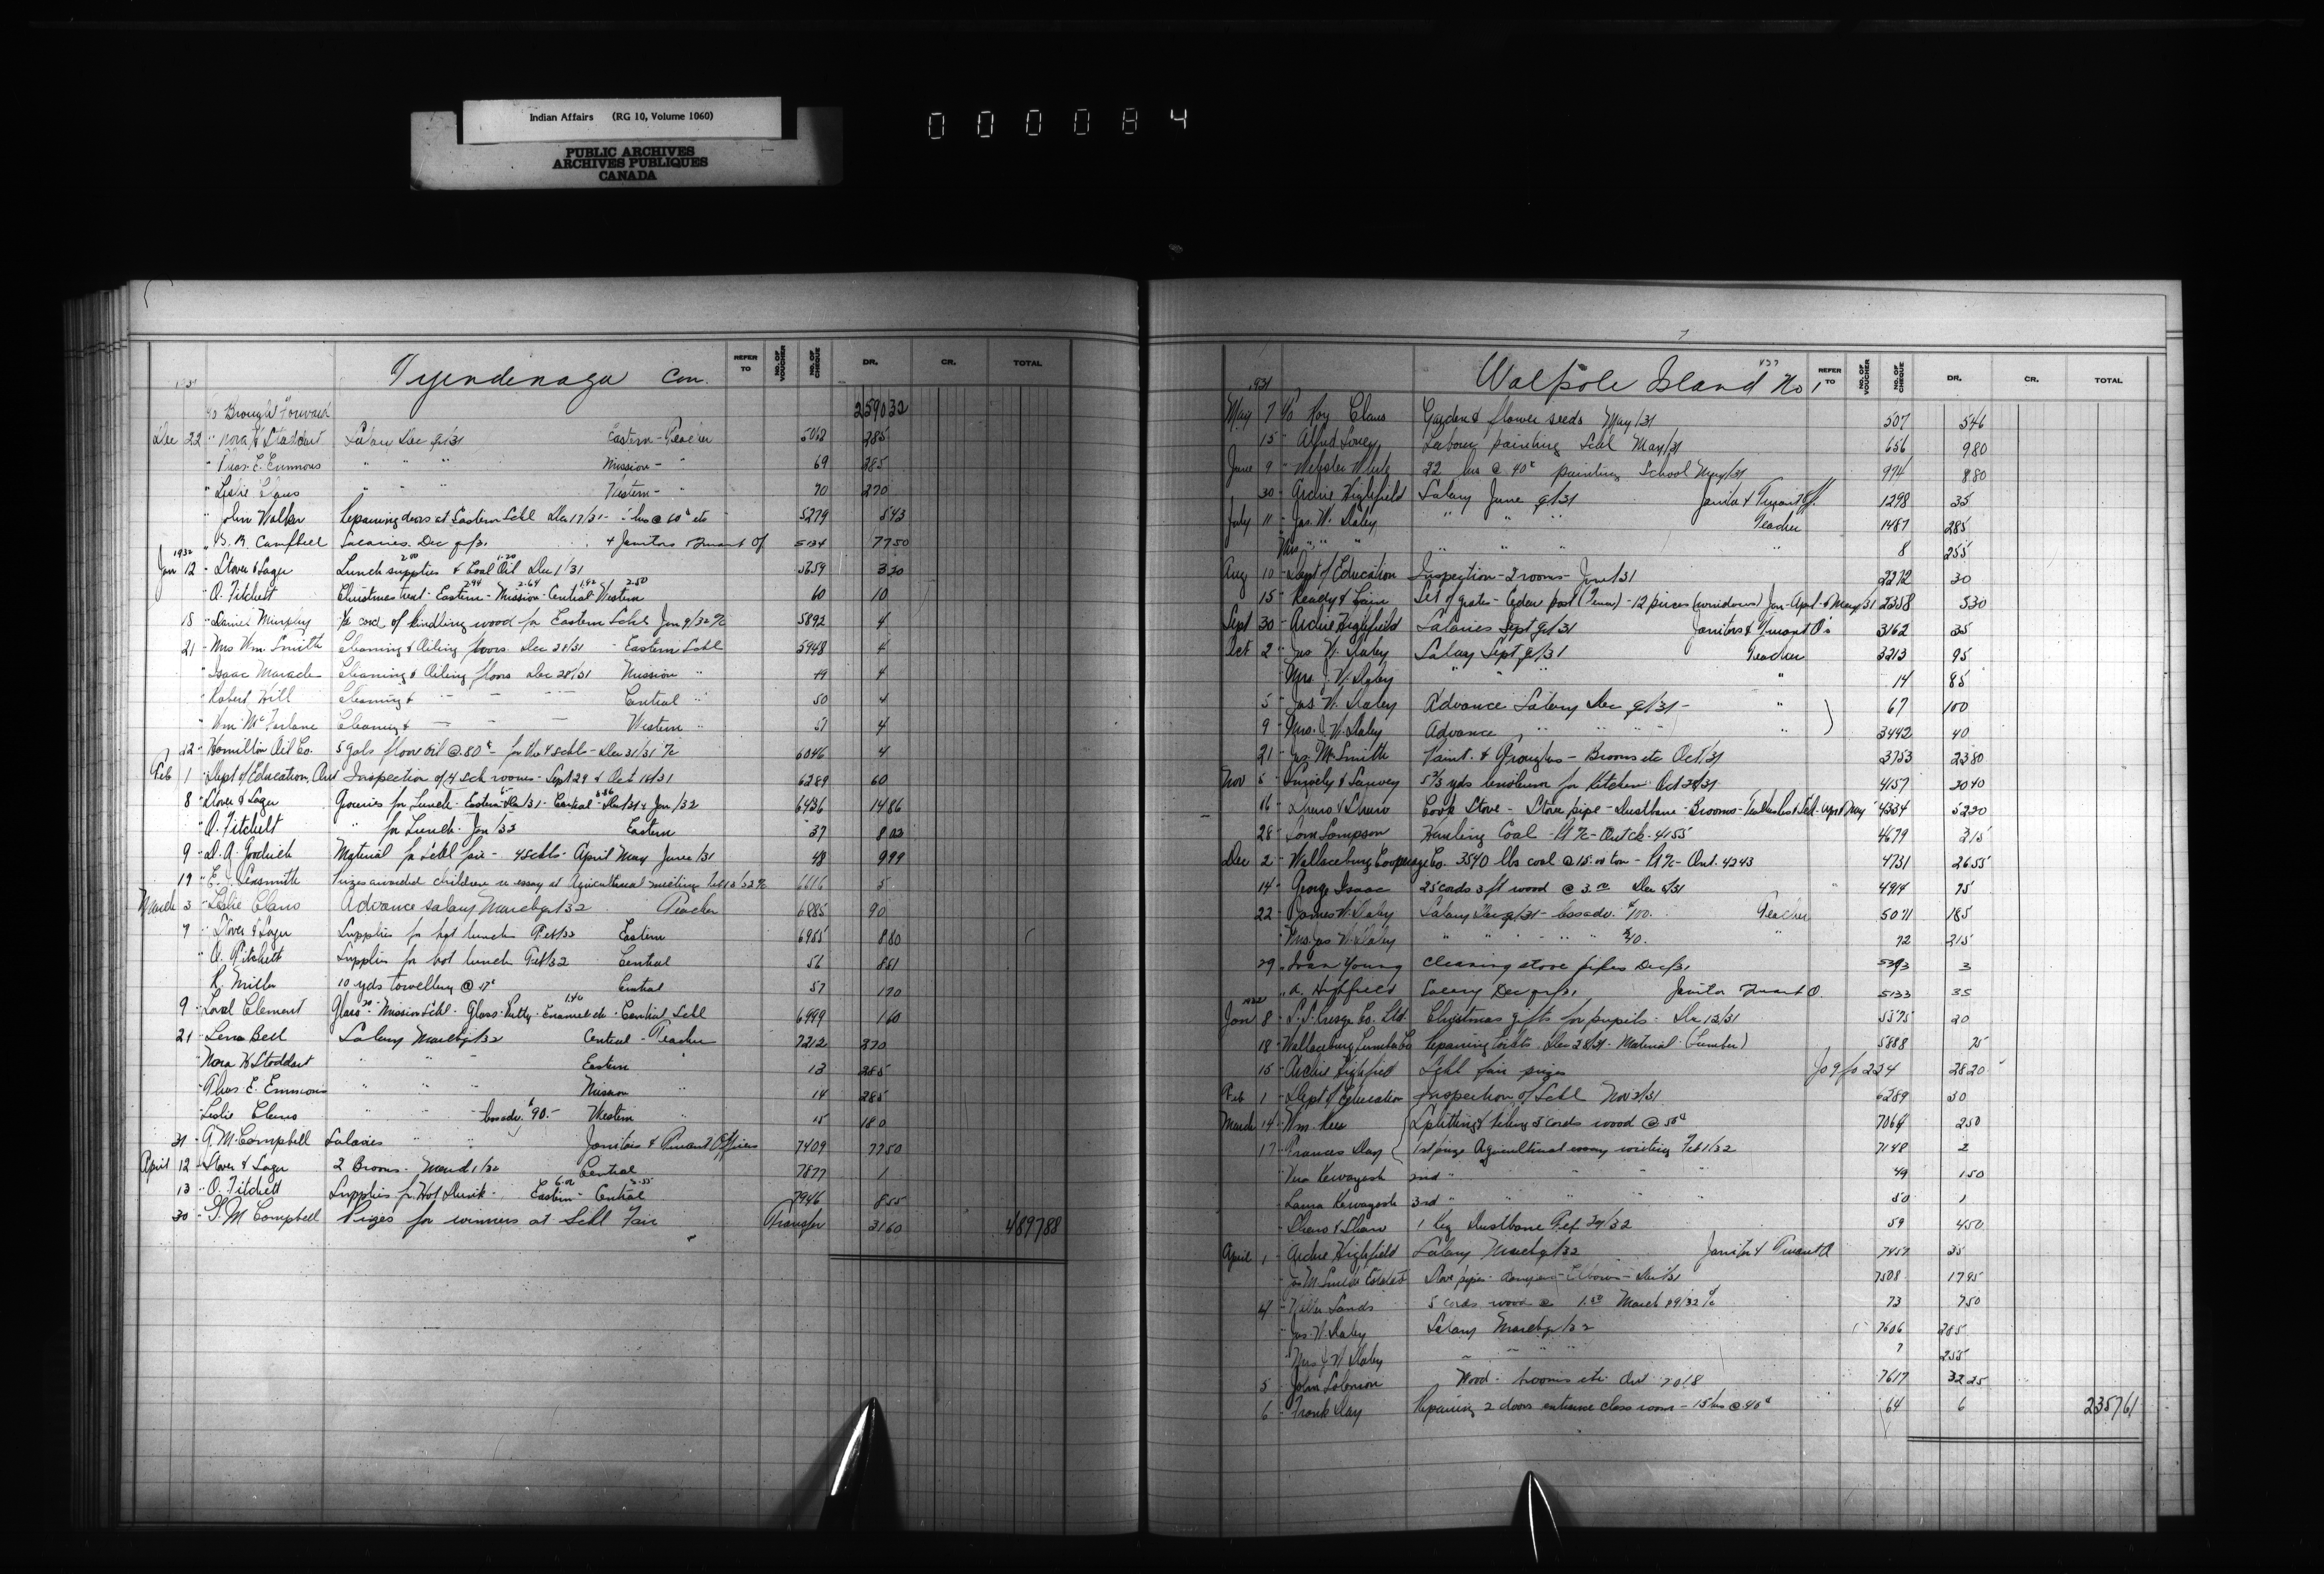 Indian Affairs (RG 10, Volume 1060)
PUBLIC ARCHIVES
ARCHIVES PUBLIQUES
CANADA
000084
Tyendinaga Con.
REFER TO NO. OF VOUCHER NO. OF CHEQUE DR. CR. TOTAL
To Brought Forward 259032
Dec 22 " Nora H Stoddart Salary Dec qr/31 Eastern - Teacher 5068 285
" Thos. E. Emmons " " " Mission - " 69 285
" Leslie Claus " " " Western - " 70 270
" John Walker Repairing doors at Eastern Schl Dec 17/31 - hrs @ 60¢ etc 5279 843
" Campbell Salaries Dec qr/31 + Janitors Truant Of 5134 7750
1932
Jan 12 " Stover & Sager Lunch supplies 2.00 & Coal Oil 1.20 Dec 1/31 5659 320
" O. Fitchett Christmas treat - Eastern 2.94 - Mission 2.64 - Central 1.92 Western 2.50 60 10
15 " Daniel Murphy cord of kindling wood for Eastern Schl Jan 9/32 5892 4
21 " Mrs Wm. Smith Cleaning & Oiling floors Dec 28/31 - Eastern Schl 5948 4
" Isaac Maracle Cleaning & Oiling floors Dec 28/31 Mission " 49 4
" Robert Hill Cleaning & — — — Central " 50 4
" Wm. McFarlane Cleaning & — — — Western " 51 4
12 " Hamilton Oil Co. 5 gals floor oil @ .80¢ - for the 4 schls - Dec 31/31 6046 4
Feb 1 " Dept of Education, Ont Inspection of 4 Sch rooms - Sept 29 & Oct 14/31 6289 60
8 " Stover & Sager Groceries for Lunch - Eastern Dec/31 - Central Dec/31 & Jan/32 6436 1486
" O. Fitchett " for Lunch - Jan/32 Eastern 37 802
9 " D. A. Goodrich Material for schl fair - 4 Schls - April May June/31 48 999
19 " E. J. Sexsmith Prizes awarded children re essay at Agricultural meeting Feb 6616 5
March 3 " Leslie Claus Advance salary March qr/32 Teacher 6885 90
7 " Stover & Sager Supplies for hot lunch Feb/32 Eastern 6955 880
" O. Fitchett Supplies for hot lunch Feb/32 Central 56 851
" R. Miller 10 yds towelling @ 17¢ Central 57 170
9 " Loral Clement Glass .20 - Mission Schl - Glass - Putty - Enamel etc 1.40 - Central Schl 6999 160
21 " Lena Bell Salary March qr/32 Central - Teacher 7212 270
" Nora H Stoddart " " " Eastern " 13 285
" Thos. E. Emmons " " " Mission " 14 285
" Leslie Claus " " " less adv. $90.- Western " 15 180
31 " G. M. Campbell Salaries " " Janitors & Truant Officers 7409 7750
April 12 " Stover & Sager 2 Brooms - March/32 Central 7877 1
13 " O. Fitchett Supplies for Hot Drink - Eastern - Central 7946 855
30 " G. M Campbell Prizes for winners at Schl Fair Transfer 3160 489788
Walpole Island No 1
REFER TO NO. OF VOUCHER NO. OF CHEQUE DR. CR. TOTAL
1931
May 7 To Roy Claus Garden & flower seeds May/31 507 546
15 " Alfred Soney Labour painting Schl May/31 656 980
June 9 " Webster White 22 hrs @ 40¢ painting School May/31 974 880
30 " Archie Highfield Salary June qr/31 Janitor & Truant Off. 1298 35
July 11 " Jas. W. Daley " " " Teacher 1487 285
Mrs " " " " " " " 8 255
Aug 10 " Dept of Education Inspection - 2 rooms - June/31 2272 30
15 " Ready & Set of grates - Cedar post (Fence) - 12 pieces (windows) Jan - April & May/31 2358 530
Sept 30 " Archie Highfield Salaries Sept qr/31 Janitors & Truant O's 3162 35
Oct 2 " Jas W. Daley Salary Sept qr/31 Teacher 3213 95
" Mrs J. W. Daley " " " " 14 85
5 " Jas W. Daley Advance Salary Dec qr/31 - " 67 100
9 " Mrs. J. W. Daley Advance " " " " 3442 40
21 " Jas. M Smith Paint & Groceries - Brooms etc Oct/31 3753 2380
Nov 5 " & Sanvey 5 2/3 yds linoleum for Kitchen Oct 28/31 4157 2040
16 " Shaw & Shaw Cook Stove - Stove pipe - Dustbane - Brooms - 4334 5220
28 " Sam Sampson Hauling Coal - Pt % - Ont ck. 4155 4679 315
Dec 2 " Wallaceburg Cooperage Co. 3540 lbs coal @ 15.00 ton - Pt % - Ont. 4243 4731 2655
14 " George Isaac 25 cords 3 ft wood @ 3.00 Dec 5/31 4914 75
22 " James W. Daley Salary Dec qr/31 - less adv. $100. Teacher 5071 185
" Mrs Jas W. Daley " " " " " $40. " 72 215
29 " Ivan Young Cleaning stove pipes Dec/31 5393 3
" A. Highfield Salary Dec qr/31 Janitor Truant O. 5133 35
1932
Jan 8 " S. S. Kresge Co. Ltd. Christmas gifts for pupils - Dec 12/31 5575 20
18 " Wallaceburg Lumber Co Repairing toilets Dec 28/31 - Material - (Lumber) 5888 75
15 " Archie Highfield Schl fair prizes Jo 9 fo 224 2820
Feb 1 " Dept of Education Inspection of Schl Nov 2/31 6289 30
March 14 " Wm. Rees Splitting & piling 5 cords wood @ 50¢ 7064 250
17 " Frances Day 1st prize Agricultural essay writing Feb 1/32 7148 2
" Vera Kewayosh 2nd " " " " " 49 150
" Laura Kewayosh 3rd " " " " " 50 1
" Shaw & Shaw 1 Keg Dustbane Feb 29/32 59 450
April 1 " Archie Highfield Salary March qr/32 Janitor & Truant O 7457 35
" Jas M Smith Estate Stove pipes - dampers - Elbows - Dec/31 7508 1795
4 " Sands 5 cords wood @ 1.50 March 29/32 73 750
" Jas. W. Daley Salary March qr/32 7606 285
" Mrs J. W. Daley " " " " 7 255
5 " John Solomon Wood - brooms etc Ont 7018 7617 3225
6 " Frank Day Repairing 2 doors entrance class room - 15 hrs @ 40¢ 64 6 235761